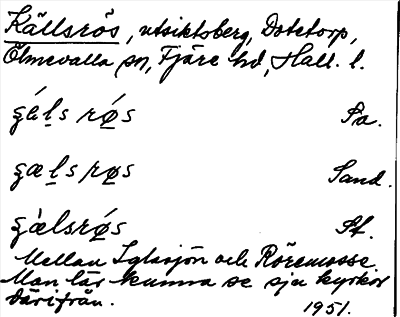 Källsrös, utsiktsberg, Dotetorp,
Ölmevalla sn, Fjäre hd, Hall. l.
ʂæ̀l̥s rǿs Sa.
ʂæl̥s rø̥s Sand.
ʂæ̀lsrǿs St.
Mellan Iglasjön och Röremosse.
Man lär kunna se sju kyrkor
därifrån. 1951.